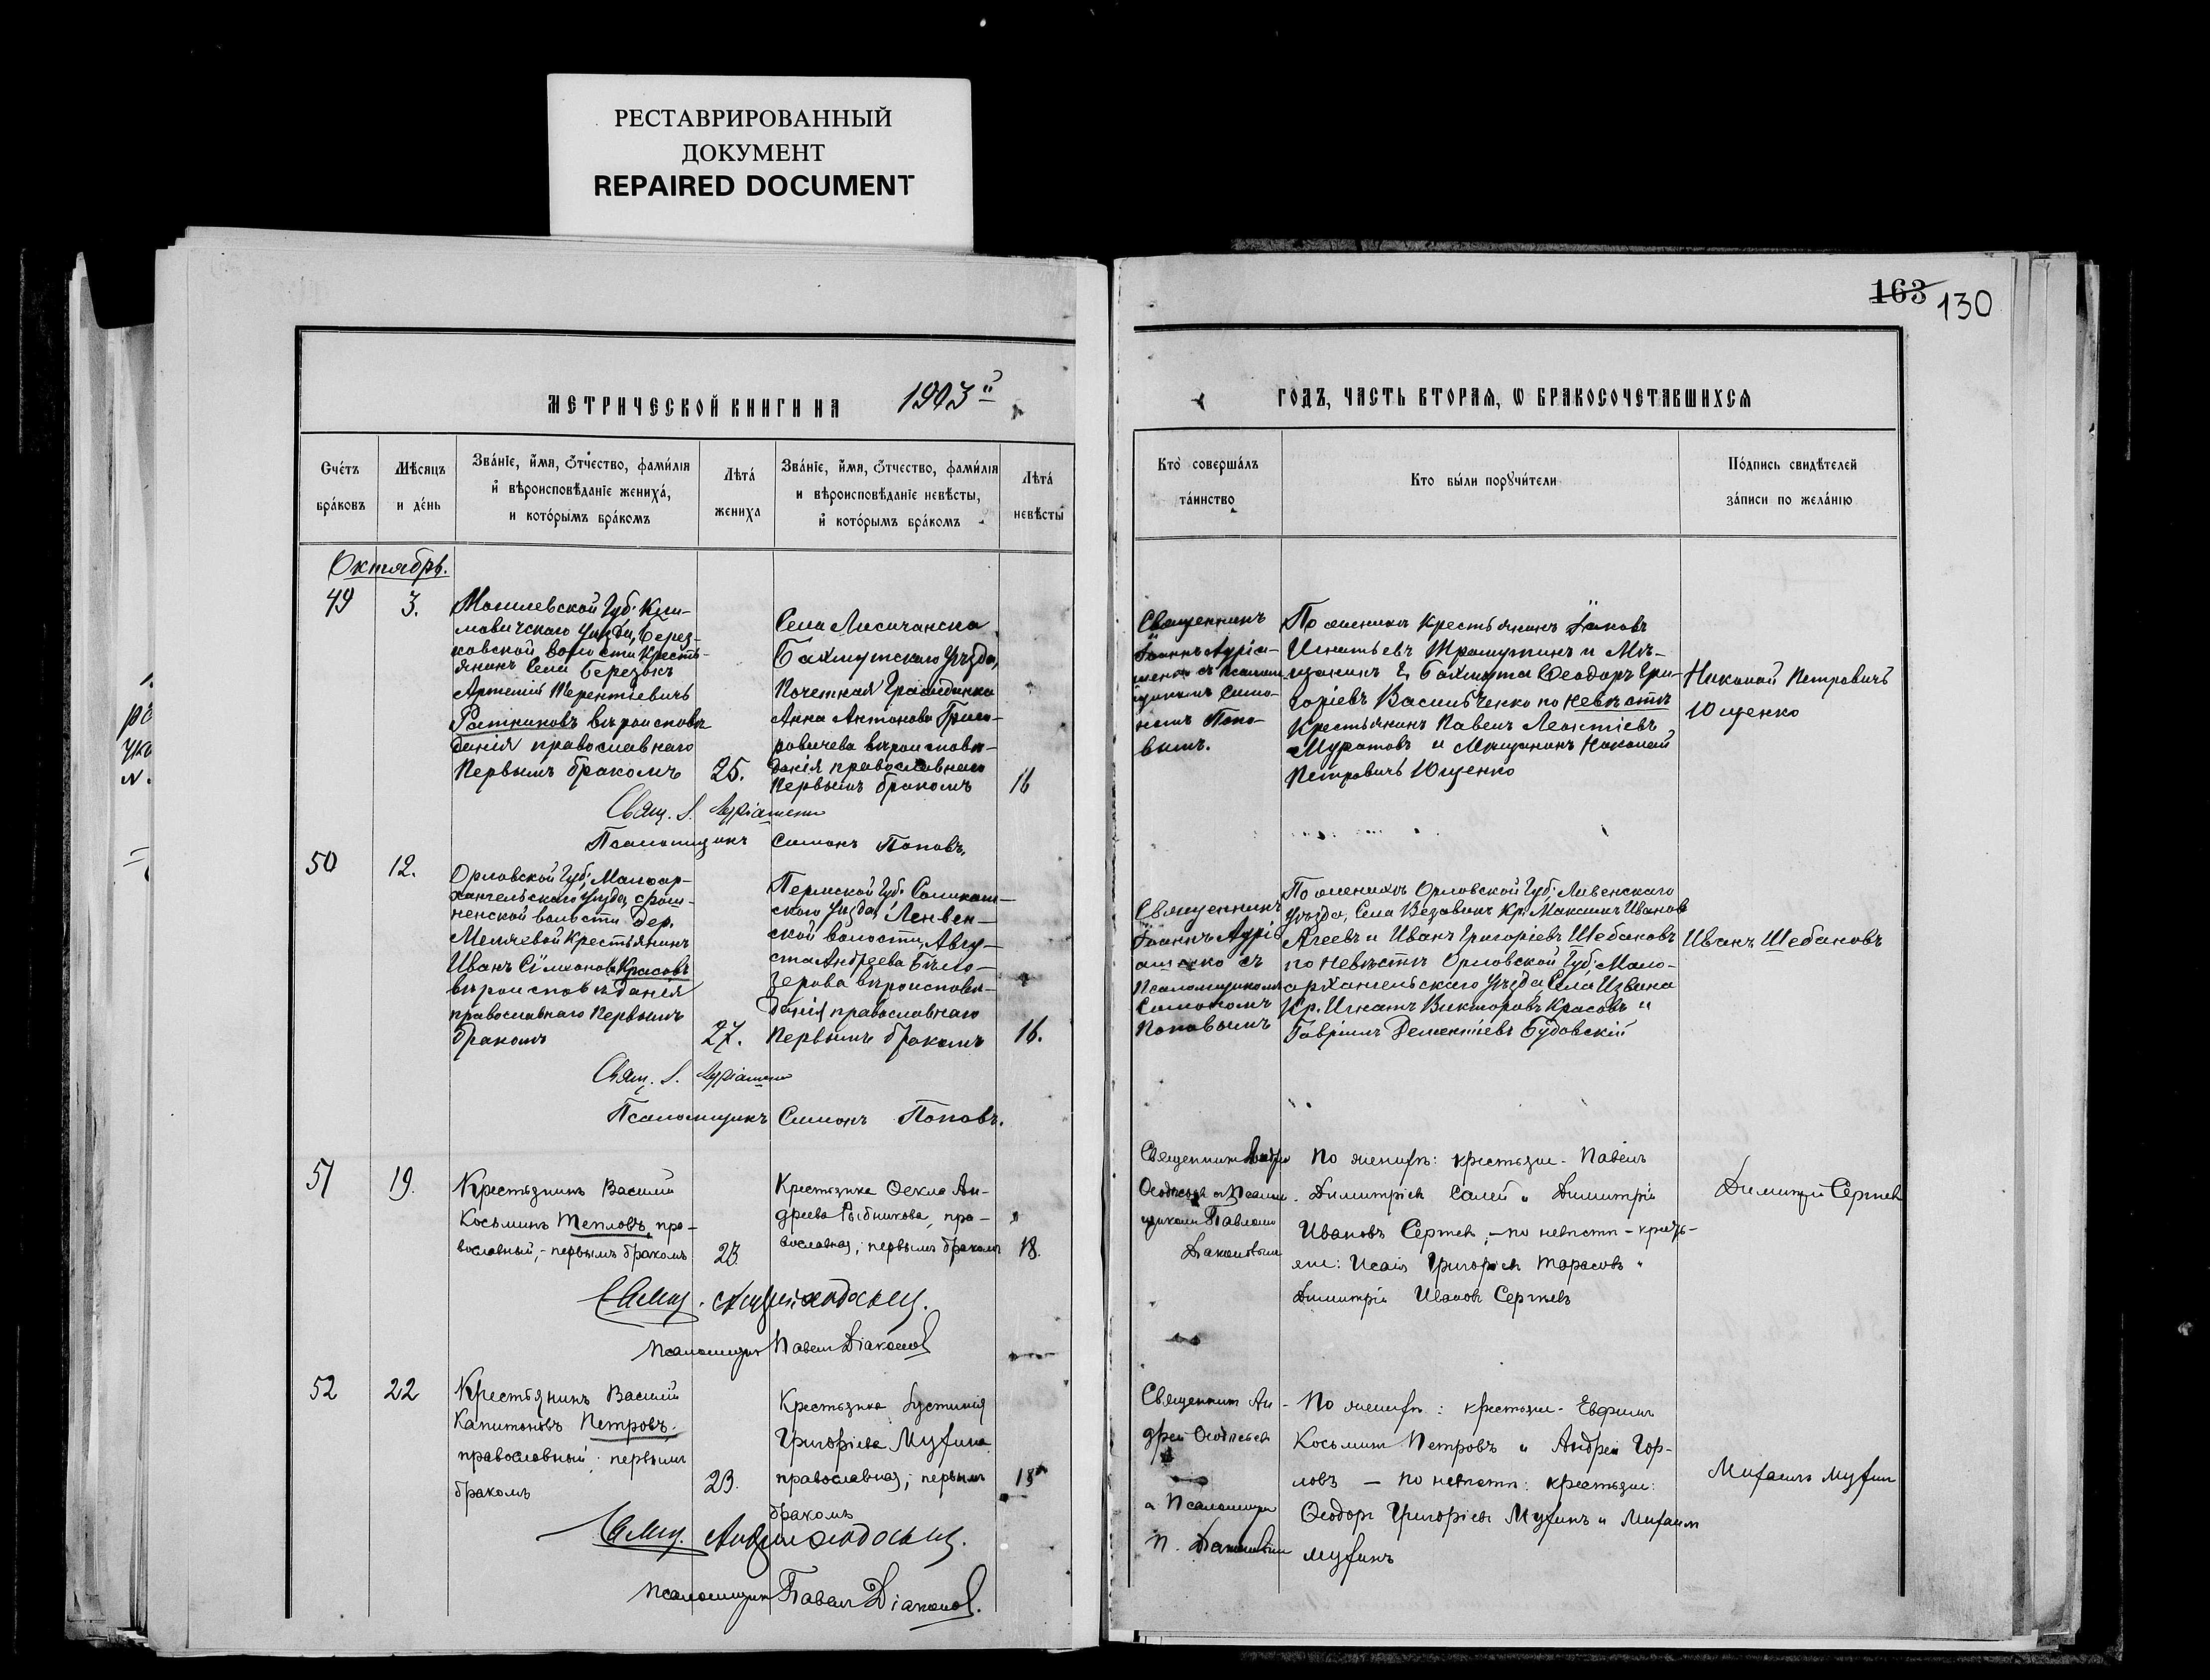 РЕСТАВРИРОВАННЫЙ
ДОКУМЕНТ
REPAIRED DOCUMENT
163 130
МЕТРИЧЕСКОЙ КНИГИ НА 1903
ГОДЪ, ЧАСТЬ ВТОРАЯ, Ѡ БРАКОСОЧЕТАВШИХСЯ
Счетъ
браковъ
Мѣсяцъ
и день
Званіе, имя, отчество, фамилія
и вѣроисповѣданіе жениха,
и которымъ бракомъ
Лѣта
жениха
Званіе, имя, отчество, фамилія
и вѣроисповѣданіе невѣсты,
и которымъ бракомъ
Лѣта
невѣсты
Кто совершалъ
таинство
Кто были поручители
Подпись свидѣтелей
записи по желанію
Октябрь.
49
3.
Могилевской Губ. Кли-
мовичскаго уѣзда, Берез-
ковской волости Кресть-
янинъ Села Березокъ
Артемій Терентіевичъ
Ратниковъ вѣроисповѣ-
данія православнаго
Первымъ бракомъ
25.
Села Лисичанска
Бахмутскаго Уѣзда,
Почетная Гражданка
Анна Антонова Григо-
ровичева вѣроисповѣ-
данія православнаго
Первымъ бракомъ
16
Священникъ
Іоаннъ
съ Псалом-
щикомъ Симо-
номъ Попо-
вымъ.
По женихѣ Крестьянинъ Іаковъ
Игнатьевъ и Мѣ-
щанинъ Г. Бахмута Ѳеодоръ Гри-
горіевъ Васильченко по невѣстѣ
Крестьянинъ Павелъ Леонтіевъ
Муратовъ и Мѣщанинъ Николай
Петровичъ Ющенко
Николай Петровичъ
Ющенко
Свящ. І.
Псаломщикъ Симонъ Поповъ.
50
12.
Орловской Губ. Малоар-
хангельскаго уѣзда,
ненской волости дер.
Крестьянинъ
Иванъ Сѵмеоновъ Красовъ
вѣроисповѣданія
православнаго Первымъ
бракомъ
27.
Пермской Губ. Соликам-
скаго уѣзда, Ленвен-
ской волости, Авгу-
ста Андреева Бѣло-
зерова вѣроисповѣ-
данія православнаго
Первымъ бракомъ
16.
Священникъ
Іоаннъ
съ
Псаломщикомъ
Симономъ
Поповымъ
По женихѣ Орловской Губ. Ливенскаго
Уѣзда, Села Кр. Максимъ Ивановъ
Агеевъ и Иванъ Григоріевъ Шебановъ
по невѣстѣ Орловской Губ. Мало-
архангельскаго Уѣзда Села
Кр. Игнатъ Викторовъ Красовъ и
Гавріилъ Дементіевъ Будовскій
Иванъ Шебановъ
Свящ. І.
Псаломщикъ Симонъ Поповъ.
51
19.
Крестьянинъ Василій
Косьминъ Тепловъ, пра-
вославный, - первымъ бракомъ
23.
Крестьянка Ѳекла Ан-
дреева Рыбникова, пра-
вославная; первымъ бракомъ
18.
Священникъ Андрей
Ѳеодосьевъ и Псалом-
щикомъ Павломъ
Діаконовымъ
По женихѣ: крестьяне - Павелъ
Димитріевъ и Димитрій
Ивановъ Сергѣевъ, - по невѣстѣ - кресть-
яне: Исаія Григорьевъ Тарасовъ и
Димитрій Ивановъ Сергѣевъ
Димитрій Сергѣевъ
Свящ. Андрей Ѳеодосьевъ.
Псаломщикъ Павелъ Діаконовъ
52
22
Крестьянинъ Василій
Капитоновъ Петровъ.
православный; первымъ
бракомъ
23.
Крестьянка Іустинія
Григоріева Мухина
православная; первымъ
бракомъ
18
Священникъ Ан-
дрей Ѳеодосьевъ
и Псаломщикъ
П. Діаконовымъ
По женихѣ: крестьяне - Евѳимъ
Косьминъ Петровъ и Андрей Гор-
ловъ - по невѣстѣ: крестьяне:
Ѳеодоръ Григорьевъ Мухинъ и Михаилъ
Мухинъ
Михаилъ Мухинъ
Свящ. Андрей Ѳеодосьевъ.
Псаломщикъ Павелъ Діаконовъ.